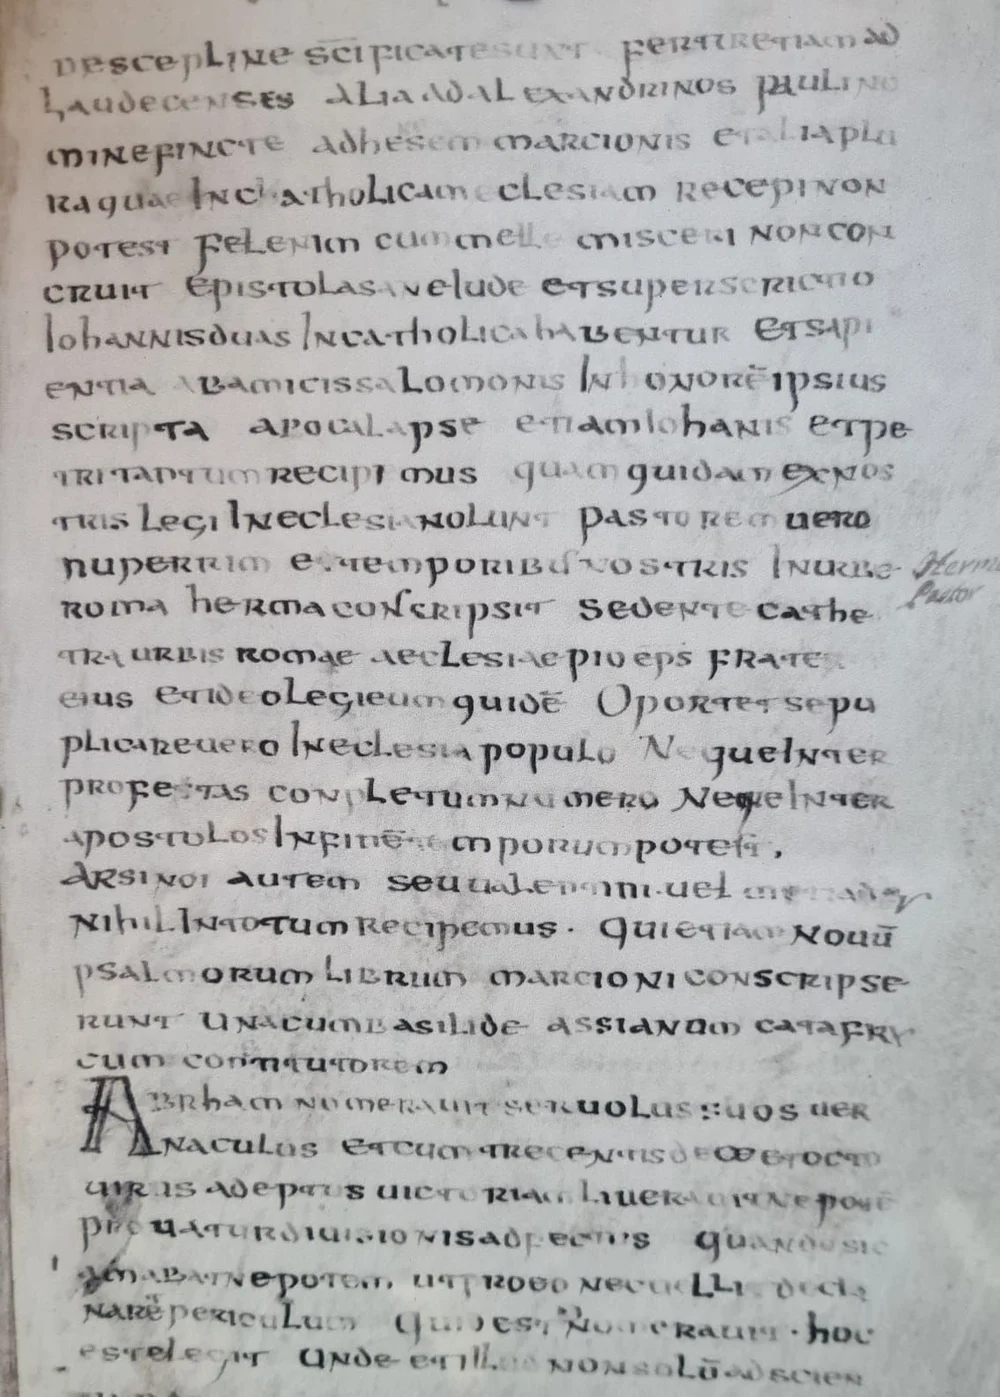 descepline scificate sunt fertur etiam ad
Laudecenses alia ad alexandrinos pauli no
mine fincte ad hesem marcionis et alia plu
ra quae In chatholicam eclesiam recepi non
potest fel enim cum melle misceri non con
cruit epistola sane Iude et superscrictio
Iohannis duas In catholica habentur et sapi
entia ab amicis salomonis In honorē ipsius
scripta apocalapse etiam Iohanis et pe
tri tantum recipimus quam quidam ex nos
tris legi In eclesia nolunt pastorem uero
nuperrim e temporibus nostris In urbe
roma herma conscripsit sedente cathe
tra urbis romae aeclesiae pio eps frater
eius et ideo legi eum quidē Oportet se pu
plicare uero In eclesia populo Neque Inter
profetas conpletum numero Neqe Inter
apostolos In finē temporum potest.
Arsinoi autem seu ualentini. uel
nihil In totum recipemus. Qui etiam nouū
psalmorum librum marcioni conscripse
runt una cum basilide assianum catafry
cum contitutorem
Abrham numerauit seruolus suos uer
naculus et cum trecentis dece et octo
uiris adeptus uictoriam liuerauit nepotē
prouatur diuisionis adfectus quando sic
amabat nepotem ut pro eo nec uelli decli
narē periculum Quid est Numerauit. hoc
est elegit Unde et illud non solū ad scien